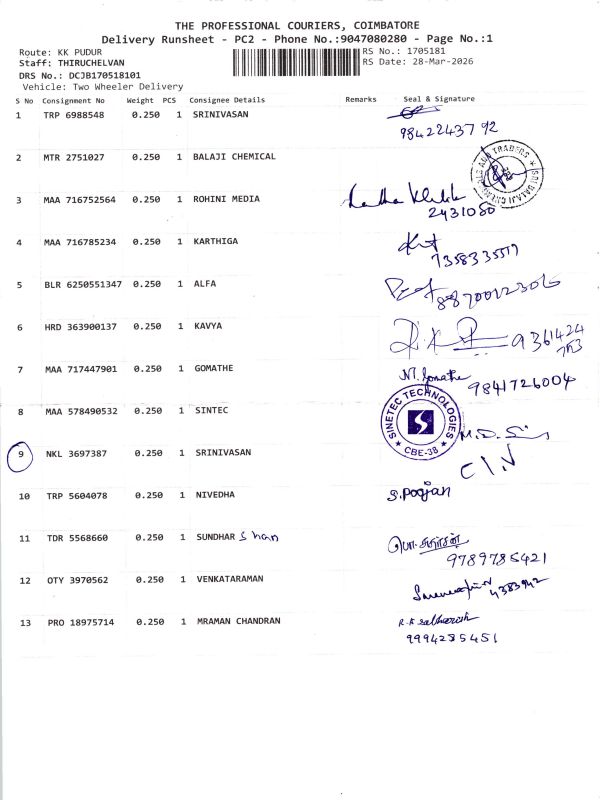 THE PROFESSIONAL COURIERS, COIMBATORE
Delivery Runsheet - PC2 - Phone No.:9047080280 - Page No.:1
Route: KK PUDUR
RS No.: 1705181
Staff: THIRUCHELVAN
RS Date: 28-Mar-2026
DRS No.: DCJB170518101
Vehicle: Two Wheeler Delivery
S No Consignment No Weight PCS Consignee Details Remarks Seal & Signature
1 TRP 6988548 0.250 1 SRINIVASAN
9842243792
2 MTR 2751027 0.250 1 BALAJI CHEMICAL
3 MAA 716752564 0.250 1 ROHINI MEDIA
2431080
4 MAA 716785234 0.250 1 KARTHIGA
5 BLR 6250551347 0.250 1 ALFA
6 HRD 363900137 0.250 1 KAVYA
7 MAA 717447901 0.250 1 GOMATHE
9841726004
8 MAA 578490532 0.250 1 SINTEC
SINETEC TECHNOLOGIES
CBE-38
9 NKL 3697387 0.250 1 SRINIVASAN
10 TRP 5604078 0.250 1 NIVEDHA S.Poojan
11 TDR 5568660 0.250 1 SUNDHAR
9789785421
12 OTY 3970562 0.250 1 VENKATARAMAN
13 PRO 18975714 0.250 1 MRAMAN CHANDRAN
9994235451